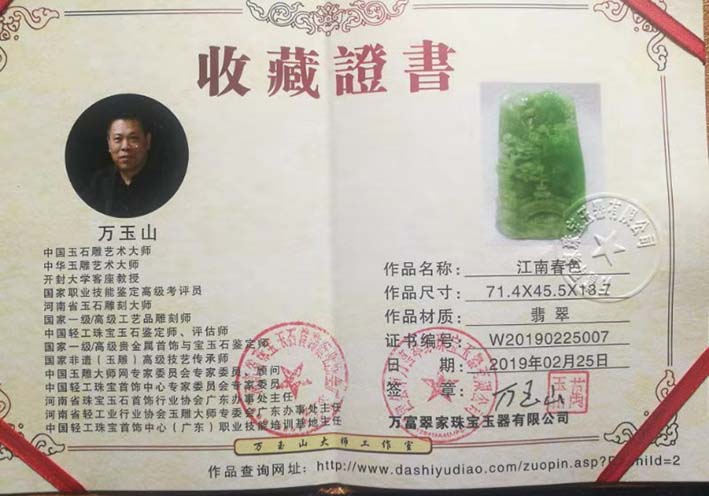 收藏證書
万玉山
中国玉石雕艺术大师
中华玉雕艺术大师
开封大学客座教授
国家职业技能鉴定高级考评员
河南省玉石雕刻大师
国家一级/高级工艺品雕刻师
中国轻工珠宝玉石鉴定师、评估师
国家一级/高级贵金属首饰与宝玉石鉴定师
国家非遗(玉雕)高级技艺传承师
中国玉雕大师网专家委员会专家、顾问
中国轻工珠宝首饰中心专家委员会专家委员
河南省珠宝玉石首饰行业协会广东办事处主任
河南省轻工业行业协会玉雕大师专委会广东办事处主任
中国轻工珠宝首饰中心(广东)职业技能培训基地主任
作品名称: 江南春色
作品尺寸: 71.4X45.5X13.7
作品材质: 翡翠
证书编号: W20190225007
日期: 2019年02月25日
签章: 万玉山
万富翠家珠宝玉器有限公司
万玉山大师工作室
作品查询网址: http://www.dashiyudiao.com/zuopin.asp?
hild=2